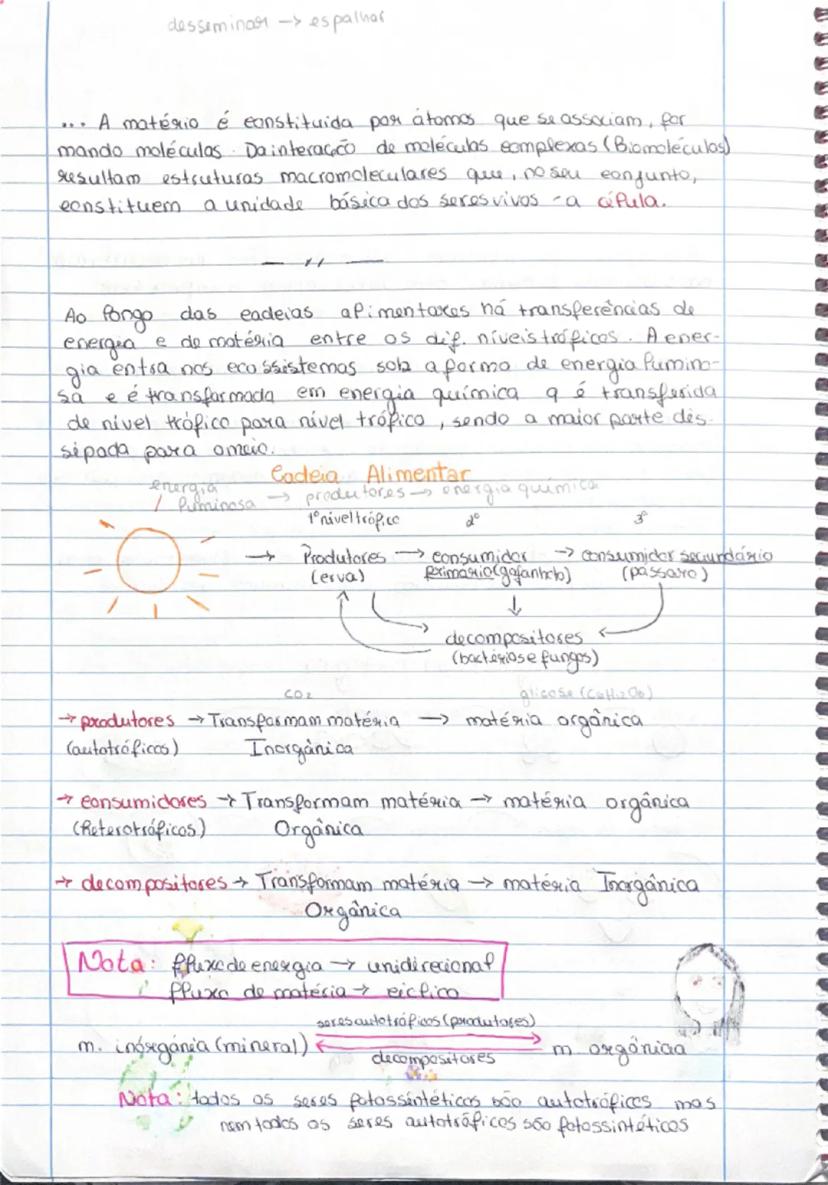 desseminar → espalhar
... A matério é constituida por átomos que se associam, for
mando moléculas. Da interacção de moléculas complexas (Biomoléculas)
resultam estruturas macromoleculares que, no seu conjunto,
constituem a unidade básica dos seres vivos - a célula.
— 11 —
Ao longo das cadeias alimentares há transferências de
energia e de matéria entre os dif. níveis tróficos. A ener-
gia entra nos ecossistemas sob a forma de energia lumino-
sa e é transformada em energia química q é transferida
de nível trófico para nível trófico, sendo a maior parte dis
sipada para o meio.
Cadeia Alimentar
energia
luminosa → produtores → energia química
1º nível trófico 2º 3º
→ Produtores → consumidor → consumidor secundário
(erva) primário (gafanhoto) (pássaro)
decompositores
(bactérias e fungos)
CO2 glicose (C6H12O6)
→ produtores → Transformam matéria → matéria orgânica
(autotróficos) Inorgânica
→ consumidores → Transformam matéria → matéria orgânica
(Heterotróficos) Orgânica
→ decompositores → Transformam matéria → matéria Inorgânica
Orgânica
Nota: fluxo de energia → unidirecional
fluxo de matéria → cíclico
seres autotróficos (produtores)
m. inorgánia (mineral) m. orgânicia
decompositores
Nota: todos os seres fotossintéticos são autotróficos mas
nem todos os seres autotróficos são fotossintéticos